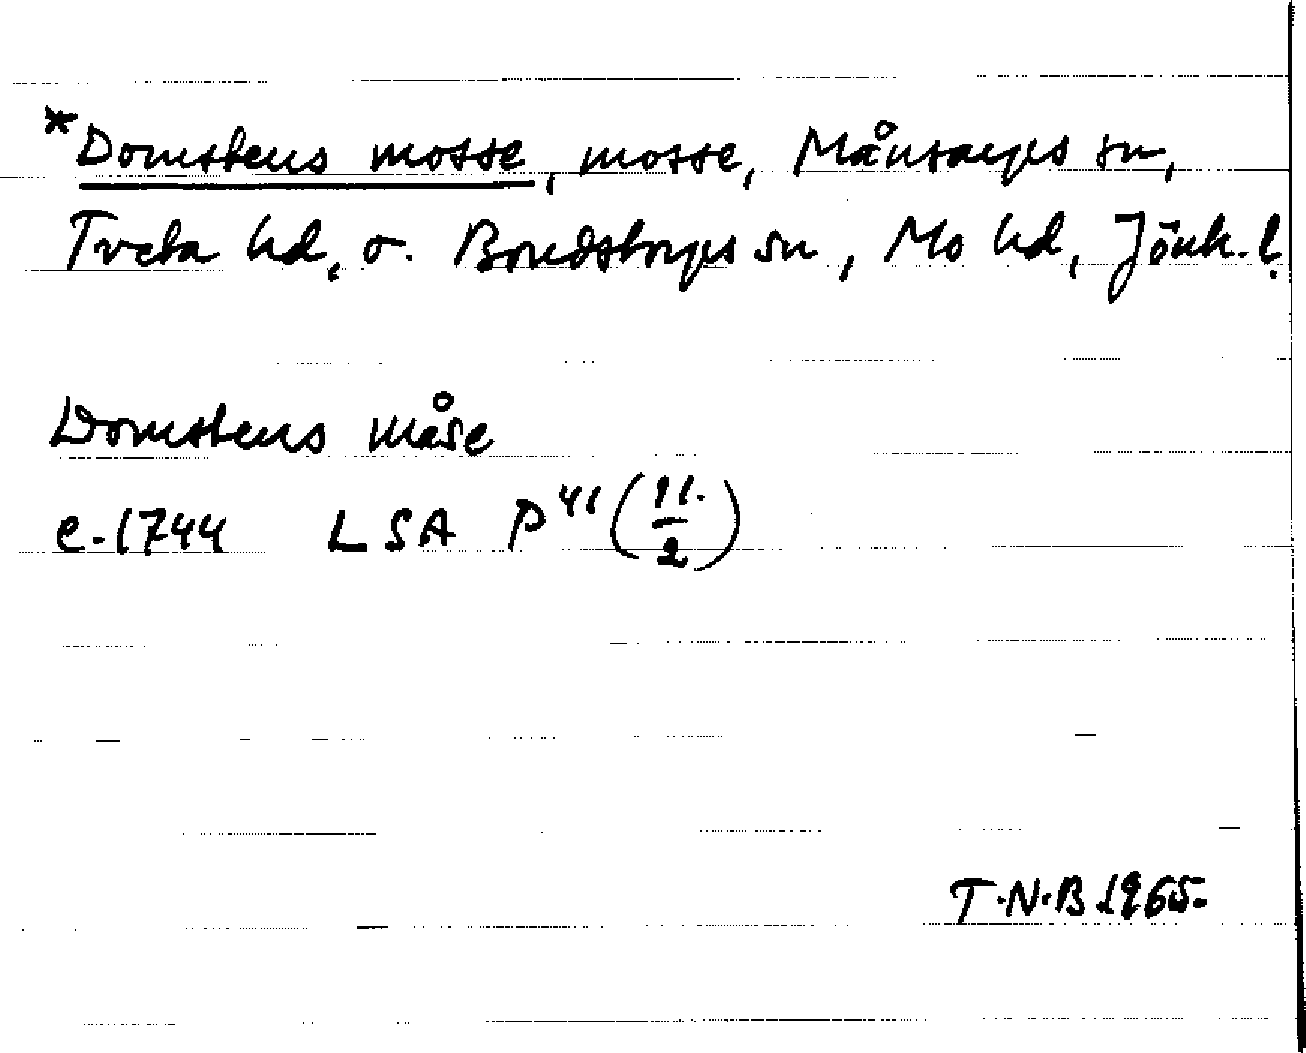 *Domstens mosse, mosse, Månsarps sn,
Tveta hd, o. Bondstorps sn, Mo hd, Jönk. l.
Domstens måse
c. 1744 LSA P 41 (11./2)
T.N.B 1965.